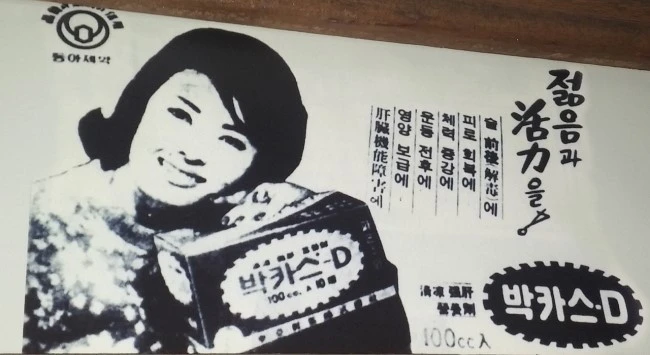 동아제약
젊음과
活力을!
술 前後(解毒)에
피로 회복에
체력 증강에
운동 전후에
영양 보급에
肝臟機能障害에
박카스-D
100cc.
淸凉 强肝
營養劑
박카스·D
100cc入